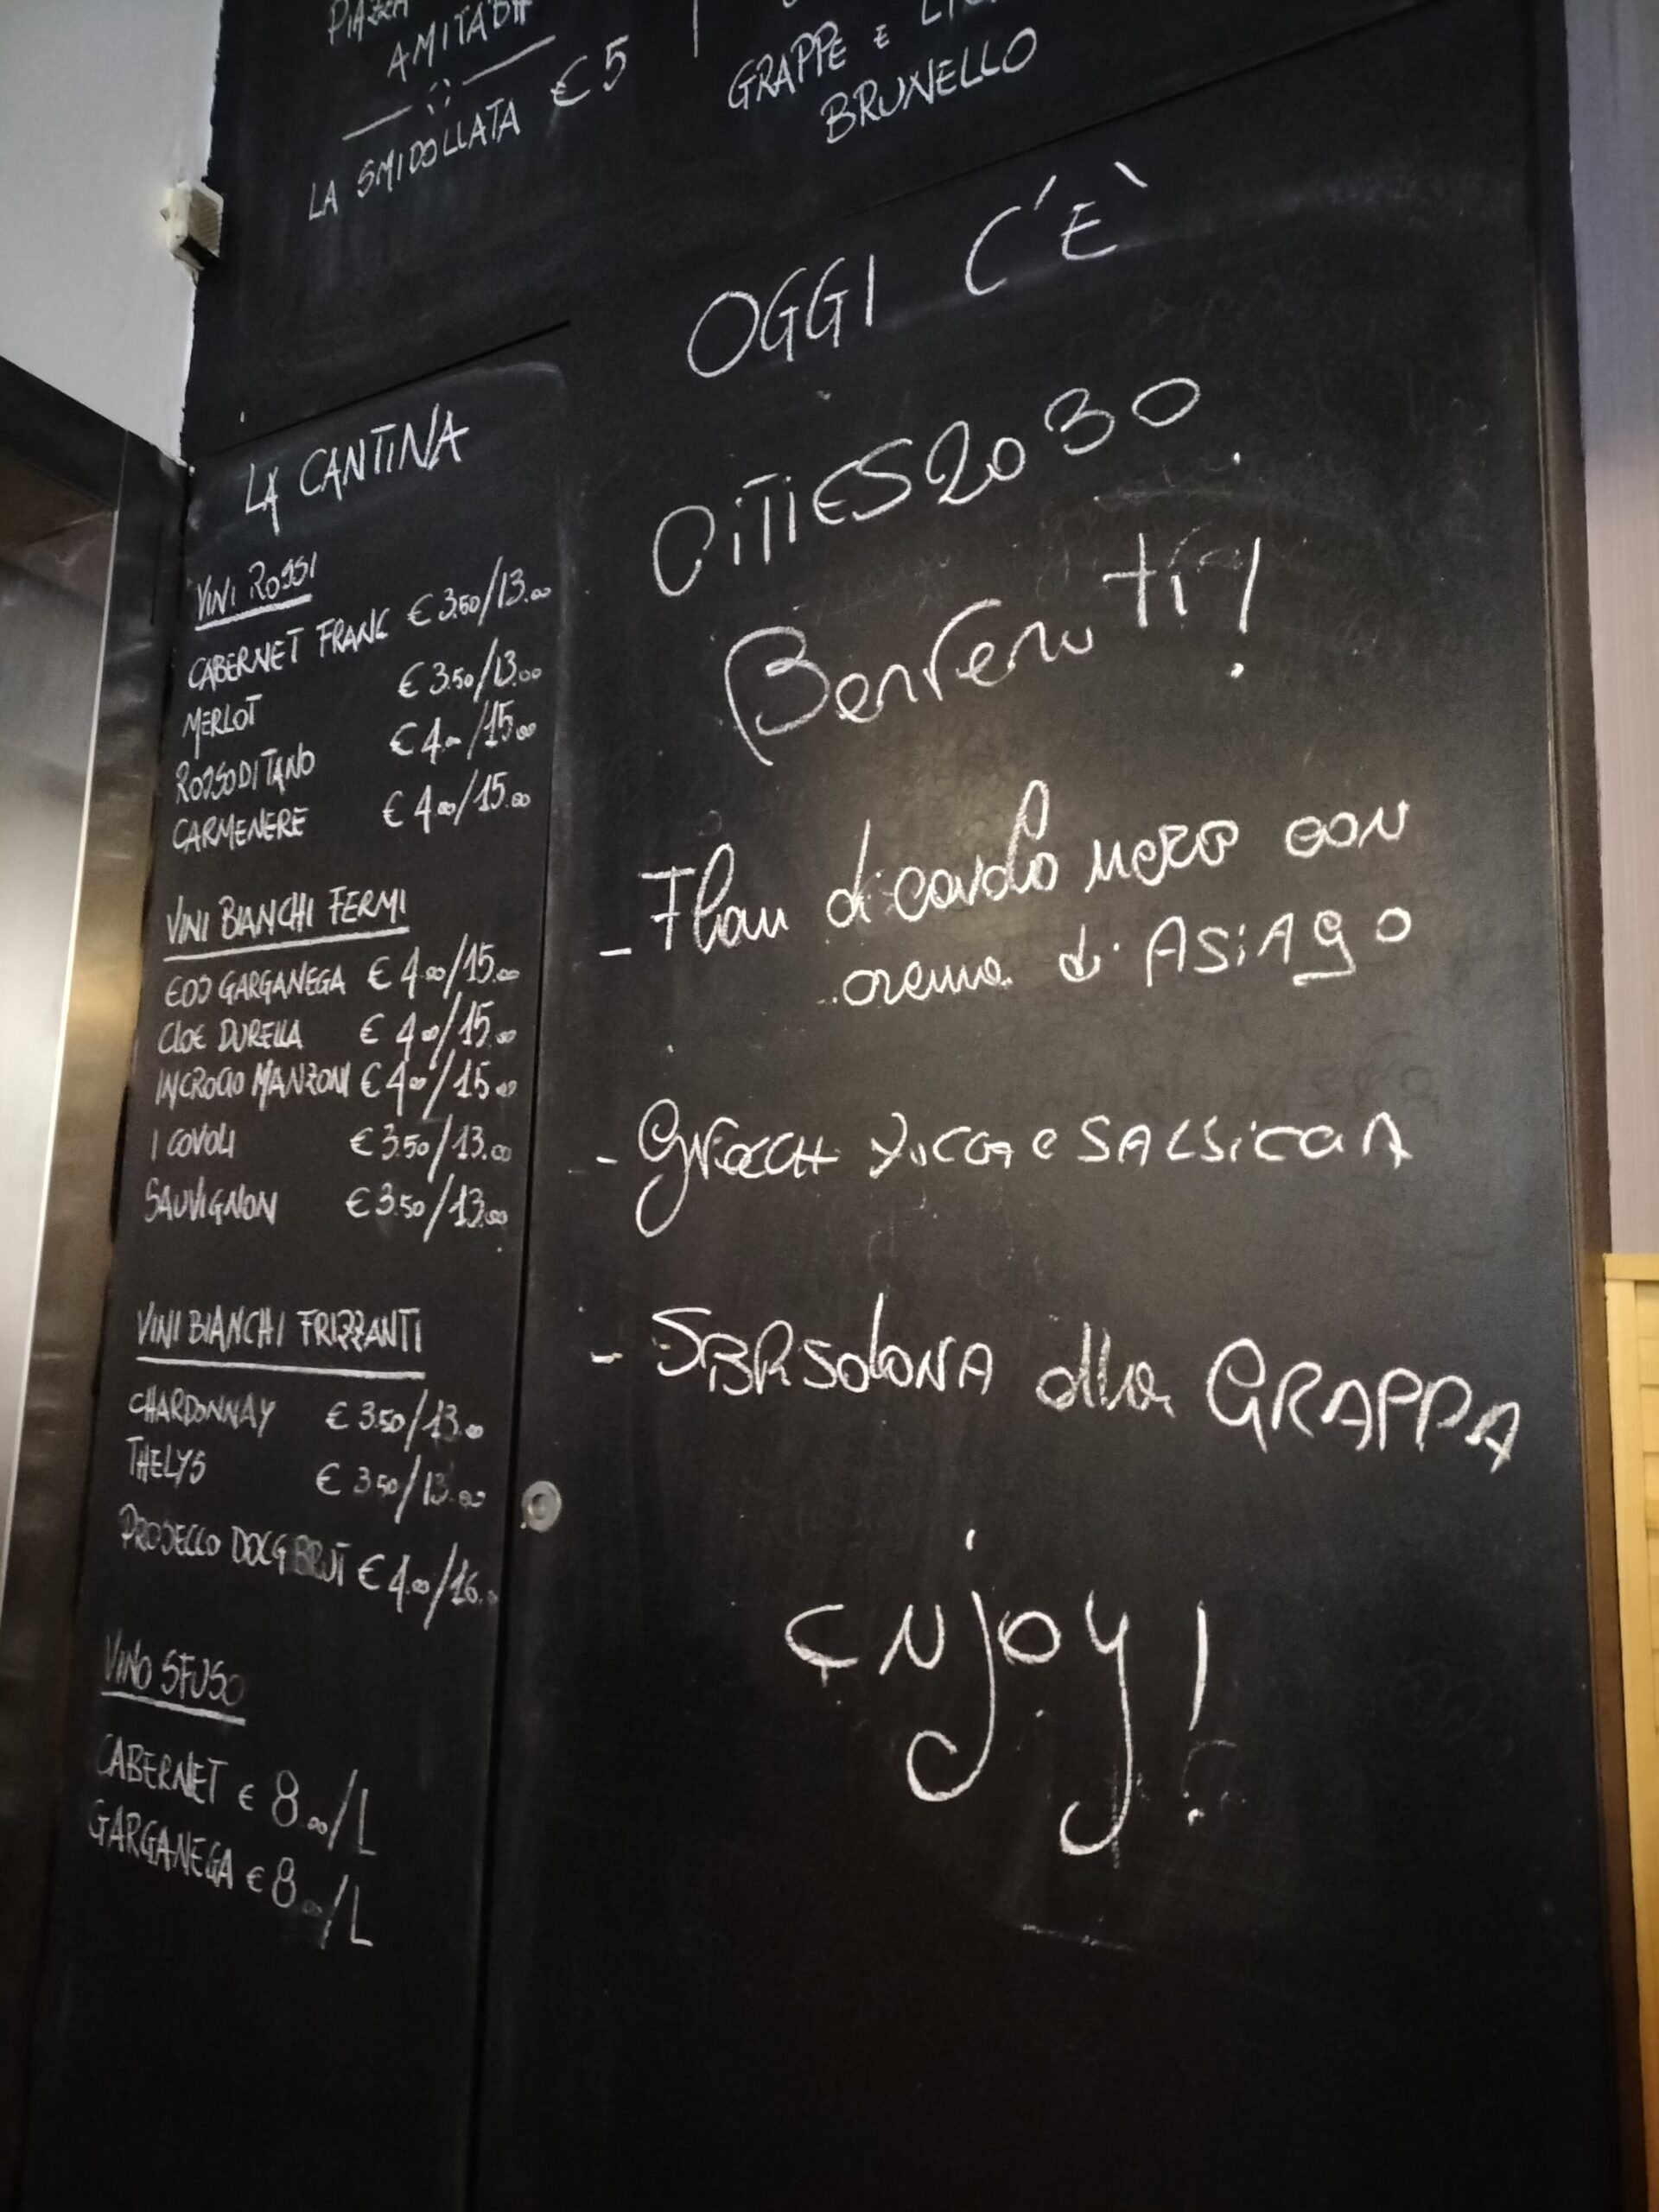 PIAZZA
AMITABH
LA SMIDOLLATA € 5
GRAPPE E
BRUNELLO
LA CANTINA
VINI ROSSI
CABERNET FRANC € 3.50/13.00
MERLOT € 3.50/13.00
ROSSO DI TANO € 4.00/15.00
CARMENERE € 4.00/15.00
VINI BIANCHI FERMI
EOS GARGANEGA € 4.00/15.00
CLOE DURELLA € 4.00/15.00
INCROCIO MANZONI € 4.00/15.00
I COVOLI € 3.50/13.00
SAUVIGNON € 3.50/13.00
VINI BIANCHI FRIZZANTI
CHARDONNAY € 3.50/13.00
THELYS € 3.50/13.00
PROSECCO DOCG BRUT € 4.00/16.
VINO SFUSO
CABERNET € 8.00/L
GARGANEGA € 8.00/L
OGGI C'È
CITIES2030
Benvenuti!
- Flan di cavolo nero con
crema di ASIAGO
- GNOCCHI e SALSICCIA
- SBRISOLONA alla GRAPPA
ENJOY!